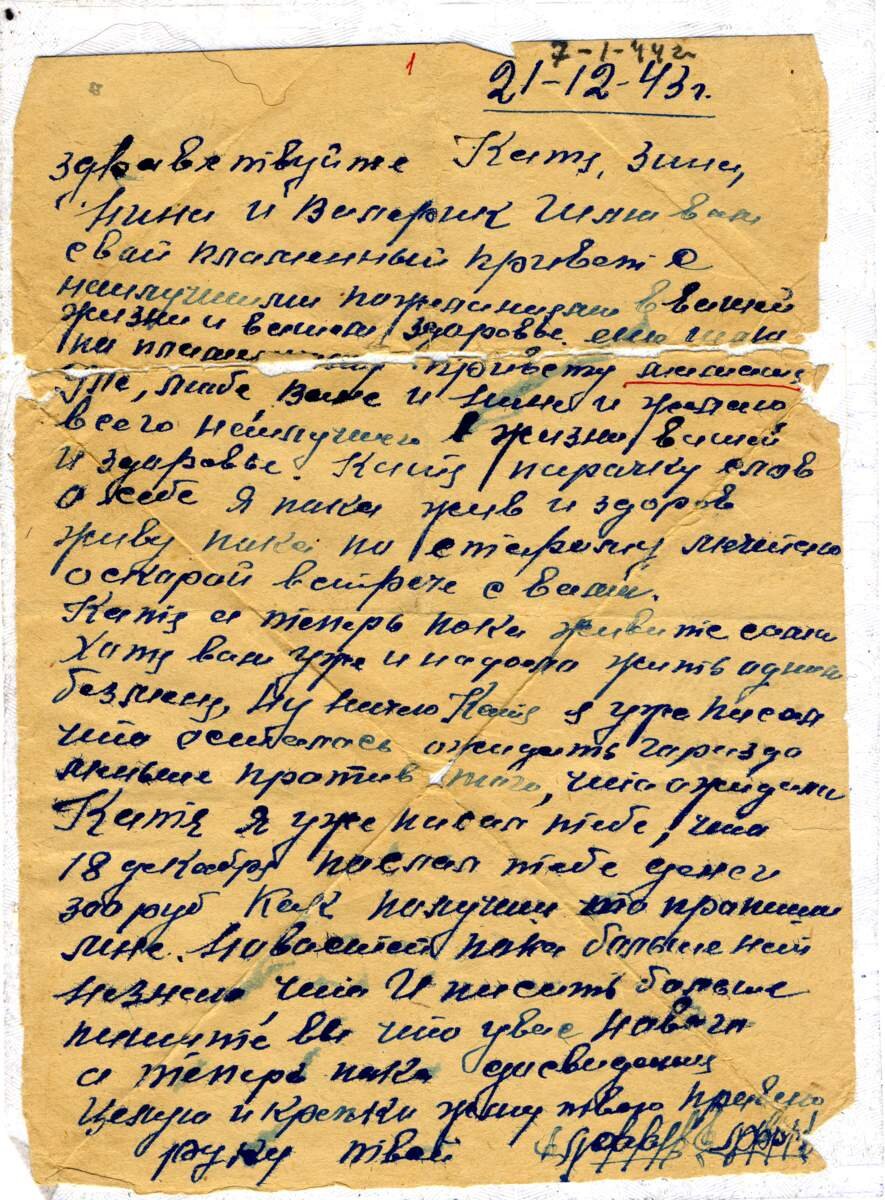 7-1-44г
1
21-12-43г.
здравствуйте Катя, Зина,
Нина и Валерик Шлю вам
свай пламенный привет с
наилучшими пожеланиями в вашей
жизни и вашем здоровье. ещо шлю
па пламенному привету мамаши
Уле, любе Вале и Нине и желаю
всего наилучшего в жизни вашей
и здоровье. Катя парачку слов
о себе я пака жив и здоров
живу пака по старому мечтаю
оскарой встрече с вами.
Катя а теперь пока живите сами
Хатя вам уже и надоела жить адним
безменя, Ну ничего Катя я уже писал
что осталась ожидать гаразда
меньше против таго, что ажидали
Катя я уже писал тебе, что
18 декабря паслал тебе денег
300 руб Как палучиш то прапиши
мне. Новастей пака больше нет
незнаю что И писать больше
пишите вы что увас новаго
а теперь пака дасвидания
Целую и крепка жму твою правую
руку твой